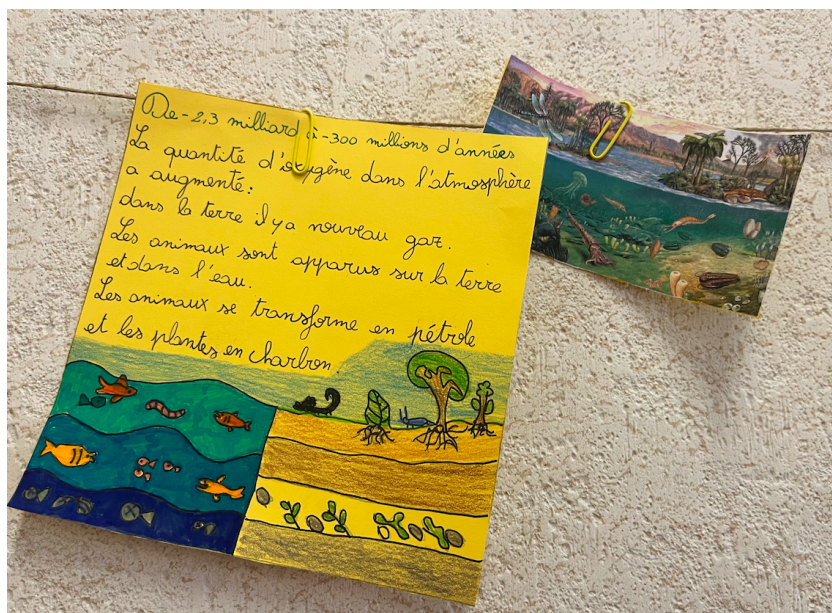 De -2,3 milliard à -300 millions d'années
La quantité d'oxygène dans l'atmosphère
a augmenté:
dans la terre il y a nouveau gaz.
Les animaux sont apparus sur la terre
et dans l'eau.
Les animaux se transforme en pétrole
et les plantes en charbon.